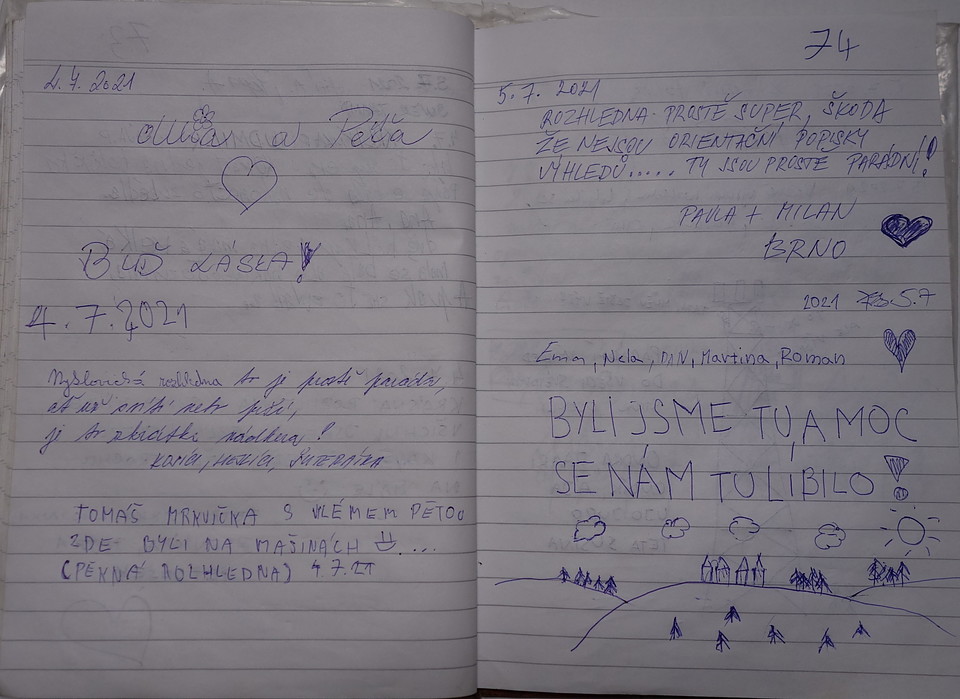 4.7.2021
a Péťa
BUĎ LÁSKA!
4.7.2021
rozhledna to je prostě paráda,
je to zkrátka nádhera!
TOMÁŠ MRKVIČKA S VLÉMEM PÉTOU
ZDE BYLI NA MAŠINÁCH ....
(PĚKNÁ ROZHLEDNA) 4.7.21
74
5.7.2021
ROZHLEDNA PROSTĚ SUPER, ŠKODA
ŽE NEJSOU ORIENTAČNÍ POPISKY
VÝHLEDŮ..... TY JSOU PROSTĚ PARÁDNÍ!
PAVLA + MILAN
BRNO
2021 5.7
Ema, Nela, DAN, Martina, Roman
BYLI JSME TU, A MOC
SE NÁM TU LÍBILO!